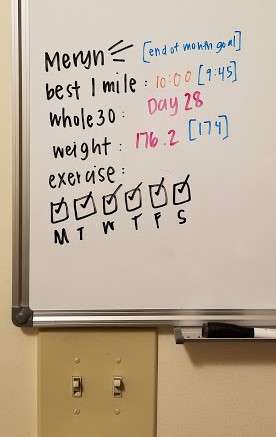 Meryn [end of month goal]
best 1 mile: 10:00 [9:45]
whole30: Day 28
weight: 176.2 [174]
exercise:
M T W T F S